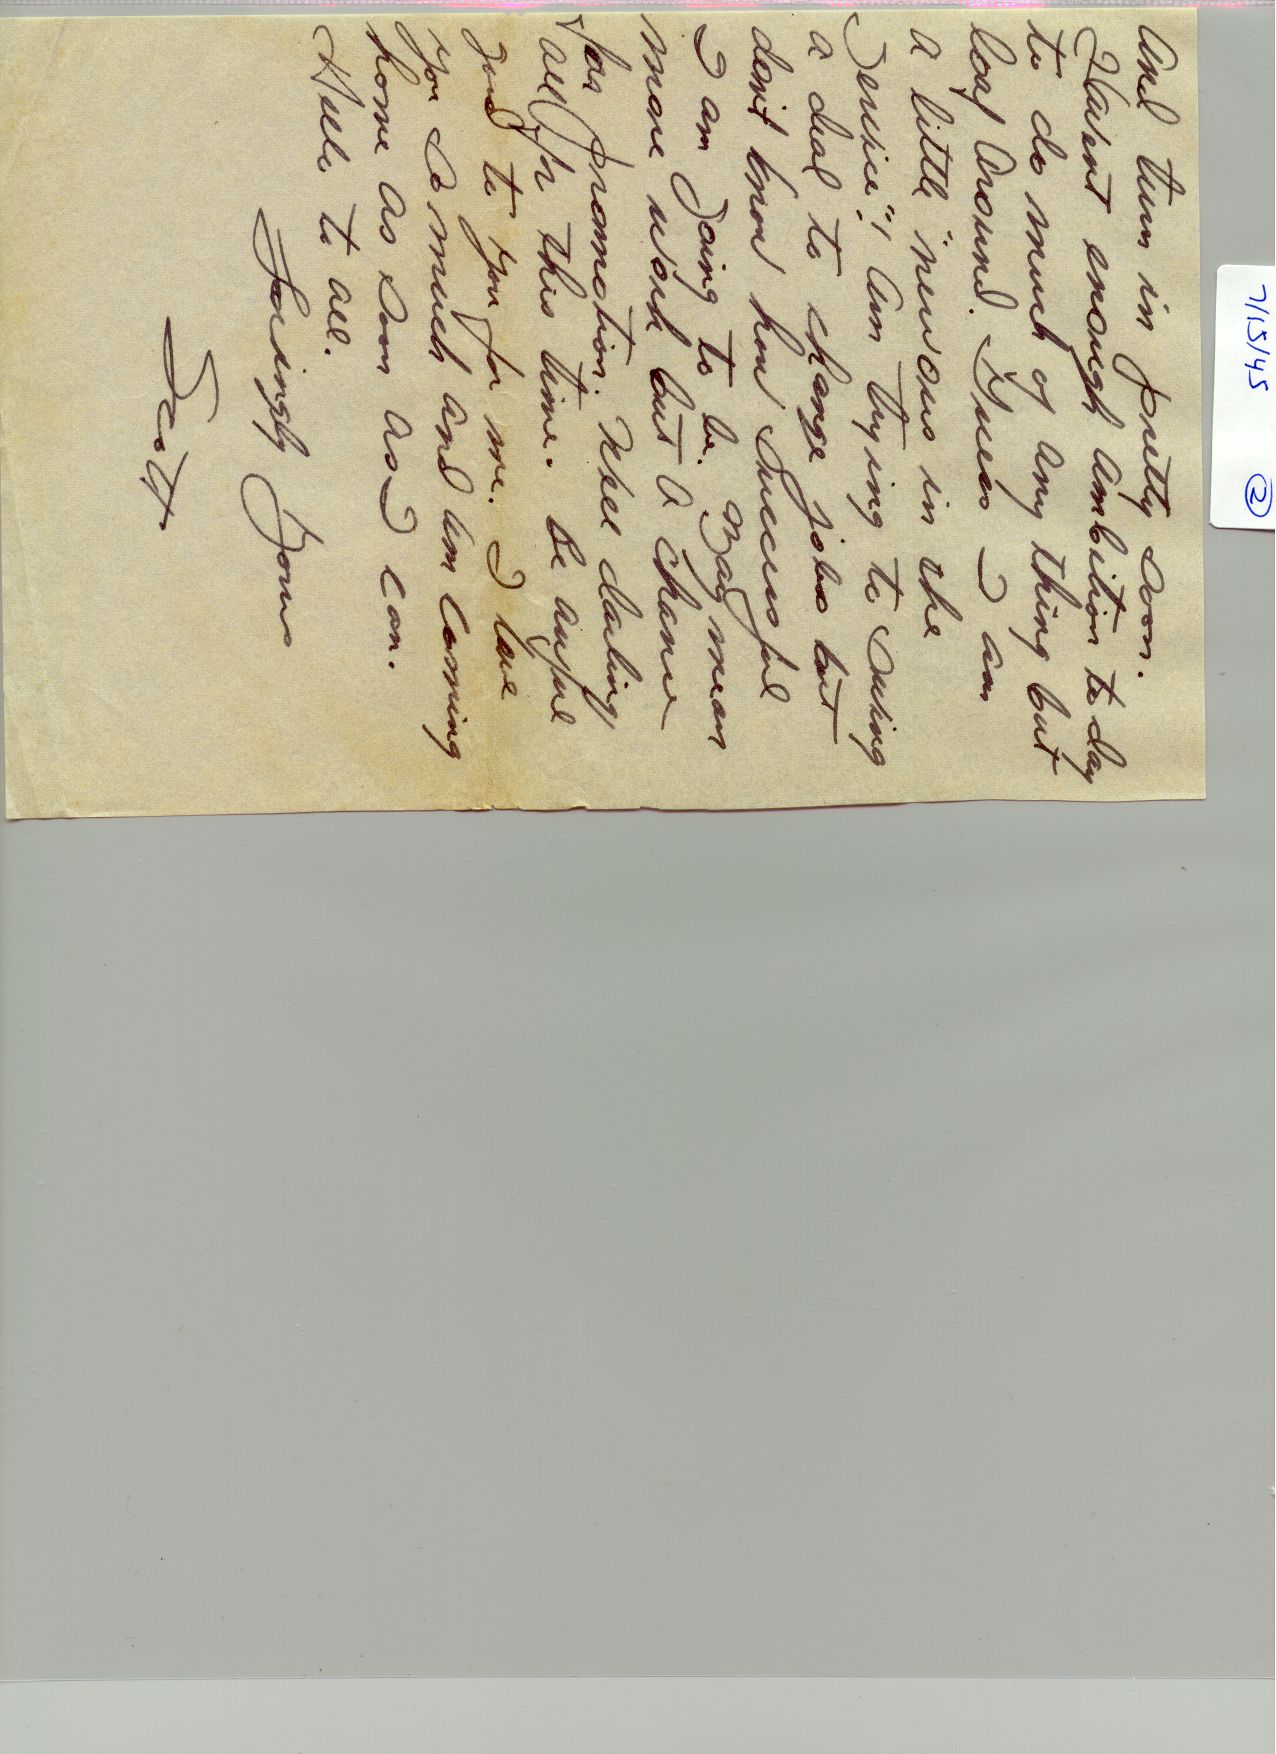 7/15/45 ②
and turn in pretty soon.
Havent enough ambition to day
to do much of any thing but
loaf around. Guess I am
a little "nervous in the
service". Am trying to swing
a deal to change jobs but
don't know how successful
I am going to be. May mean
more work but a chance
for promotion. Well darling
all for this time. Be awful
good to you for me. I love
you so much and am coming
home as soon as I can.
Hello to all.
Lovingly Yours
Scott